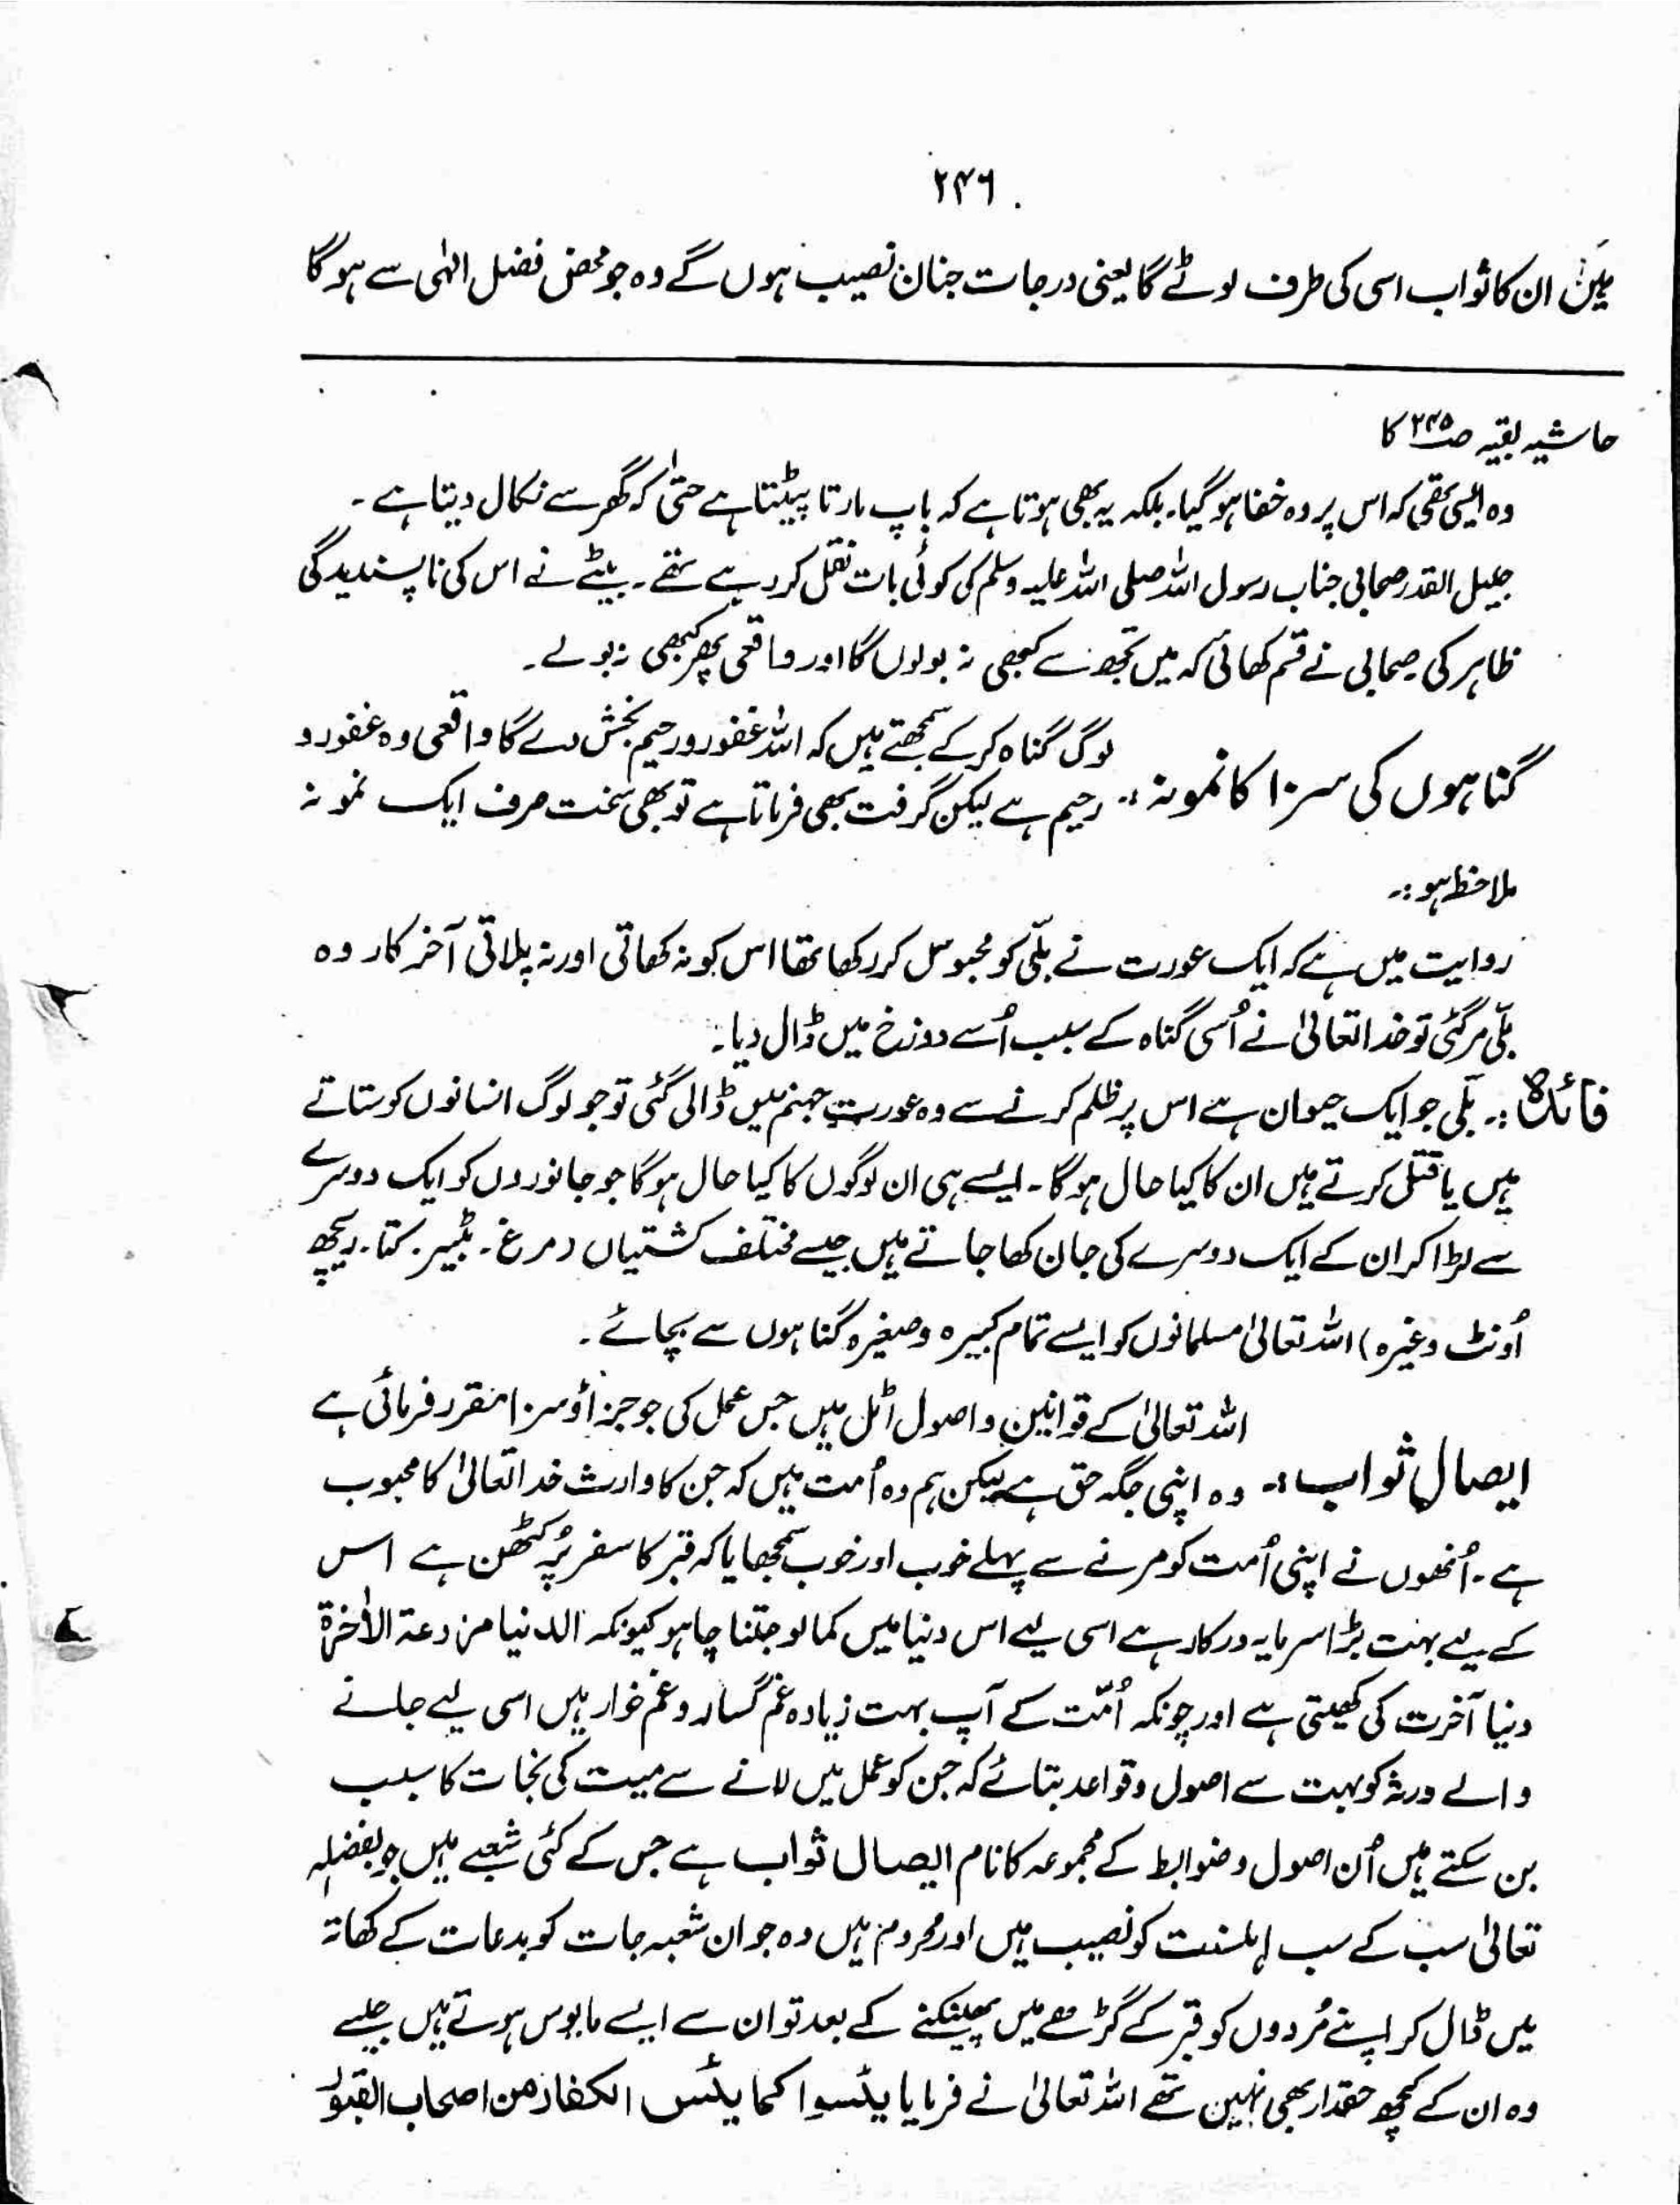 ۲۴۶
ہیں ان کا ثواب اسی کی طرف لوٹے گا یعنی درجات جنان نصیب ہوں گے وہ جو محض فضل الٰہی سے ہو گا
حاشیہ بقیہ صـ۲۴۵ کا
وہ ایسی تھی کہ اس پر وہ خفا ہو گیا۔ بلکہ یہ بھی ہوتا ہے کہ باپ مارتا پیٹتا ہے حتیٰ کہ گھر سے نکال دیتا ہے۔
جلیل القدر صحابی جناب رسول اللہ صلی اللہ علیہ وسلم کی کوئی بات نقل کر رہے تھے۔ بیٹے نے اس کی ناپسندیدگی
ظاہر کی صحابی نے قسم کھائی کہ میں تجھ سے کبھی نہ بولوں گا اور واقعی پھر کبھی نہ بولے۔
گناہوں کی سزا کا نمونہ :۔ لوگ گناہ کر کے سمجھتے ہیں کہ اللہ غفور و رحیم بخش دے گا واقعی وہ غفور و
رحیم ہے لیکن گرفت بھی فرماتا ہے تو بھی سخت صرف ایک نمونہ
ملاحظہ ہو :۔
روایت میں ہے کہ ایک عورت نے بلّی کو محبوس کر رکھا تھا اس کو نہ کھاتی اور نہ پلاتی آخر کار وہ
بلّی مر گئی تو خدا تعالیٰ نے اُسی گناہ کے سبب اُسے دوزخ میں ڈال دیا۔
فائدہ :۔ بلّی جو ایک حیوان ہے اس پر ظلم کرنے سے وہ عورت جہنم میں ڈالی گئی تو جو لوگ انسانوں کو ستاتے
ہیں یا قتل کرتے ہیں ان کا کیا حال ہو گا۔ ایسے ہی ان لوگوں کا کیا حال ہو گا جو جانوروں کو ایک دوسرے
سے لڑا کر ان کے ایک دوسرے کی جان کھا جاتے ہیں جیسے مختلف کشتیاں (مرغ۔ بٹیر۔ کتا۔ ریچھ
اُونٹ وغیرہ) اللہ تعالیٰ مسلمانوں کو ایسے تمام کبیرہ و صغیرہ گناہوں سے بچائے۔
ایصالِ ثواب :۔ اللہ تعالیٰ کے قوانین و اصول اٹل ہیں جس عمل کی جو جزا و سزا مقرر فرمائی ہے
وہ اپنی جگہ حق ہے لیکن ہم وہ اُمت ہیں کہ جن کا وارث خدا تعالیٰ کا محبوب
ہے۔ اُنھوں نے اپنی اُمت کو مرنے سے پہلے خوب اور خوب سمجھایا کہ قبر کا سفر پُر کٹھن ہے اس
کے لیے بہت بڑا سرمایہ درکار ہے اسی لیے اس دنیا میں کما لو جتنا چاہو کیونکہ الدنیا مزرعۃ الاٰخرۃ
دنیا آخرت کی کھیتی ہے اور چونکہ اُمّت کے آپ بہت زیادہ غم گسار و غم خوار ہیں اسی لیے جانے
والے ورثہ کو بہت سے اصول و قواعد بتائے کہ جن کو عمل میں لانے سے میت کی نجات کا سبب
بن سکتے ہیں اُن اصول و ضوابط کے مجموعہ کا نام ایصال ثواب ہے جس کے کئی شعبے ہیں جو بفضلہٖ
تعالیٰ سب کے سب اہلسنت کو نصیب ہیں اور محروم ہیں وہ جو ان شعبہ جات کو بدعات کے کھاتہ
میں ڈال کر اپنے مُردوں کو قبر کے گڑھے میں پھینکنے کے بعد تو ان سے ایسے مایوس ہوتے ہیں جیسے
وہ ان کے کچھ حقدار بھی نہیں تھے اللہ تعالیٰ نے فرمایا یئسوا کما یئس الکفار من اصحاب القبور